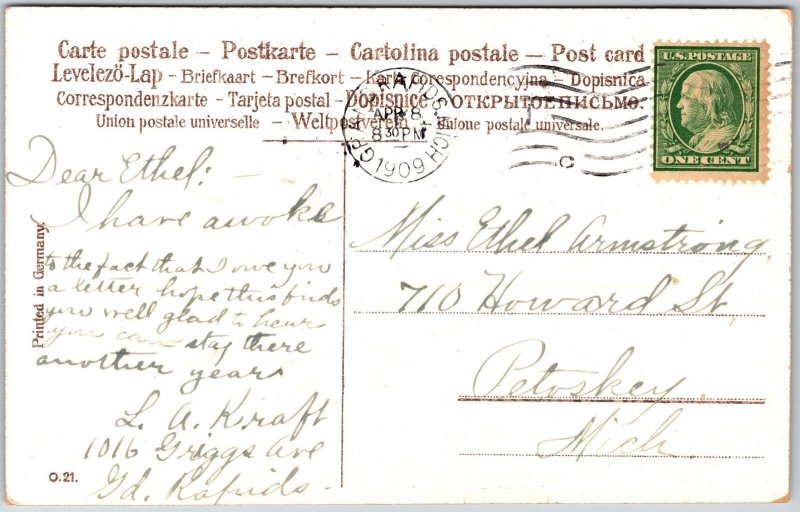 Carte postale – Postkarte – Cartolina postale – Post card
Levelezö-Lap – Briefkaart – Brefkort – Karta corespondencyjna – Dopisnica
Correspondenzkarte – Tarjeta postal – Dopisnice – ОТКРЫТОЕ ПИСЬМО.
Union postale universelle – Weltpostverein – Unione postale universale.
GRAND RAPIDS, MICH
APR 8
8 30 PM
1909
C
U.S. POSTAGE
ONE CENT
Dear Ethel: –
I have awoke
to the fact that I owe you
a letter hope this finds
you well glad to hear
you can stay there
another year
L. A. Kraft
1016 Griggs Ave
Gd. Rapids –
Miss Ethel Armstrong
710 Howard St,
Petoskey
Mich.
Printed in Germany.
O.21.